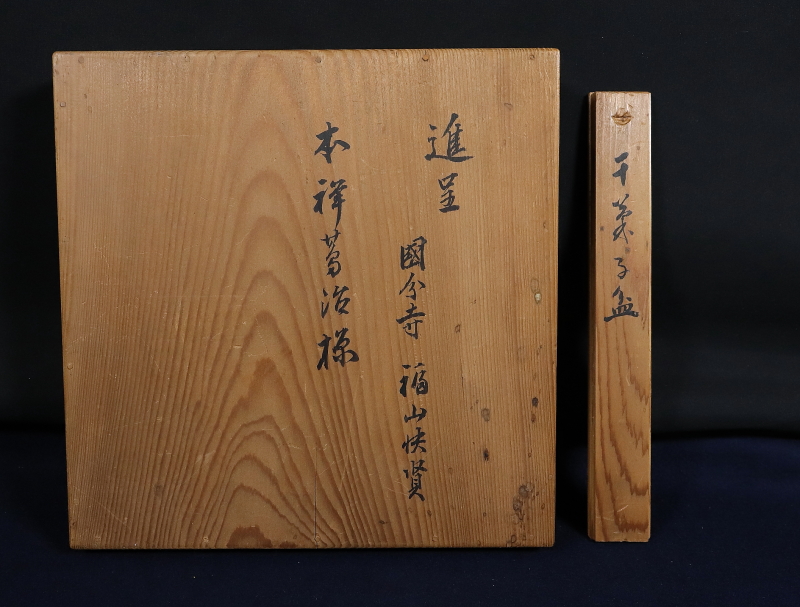 進呈
國分寺 福山快賢
本祥葛治様
干菓子盆